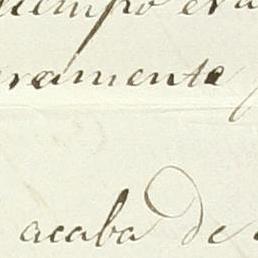 tiempo
ramente
acaba de